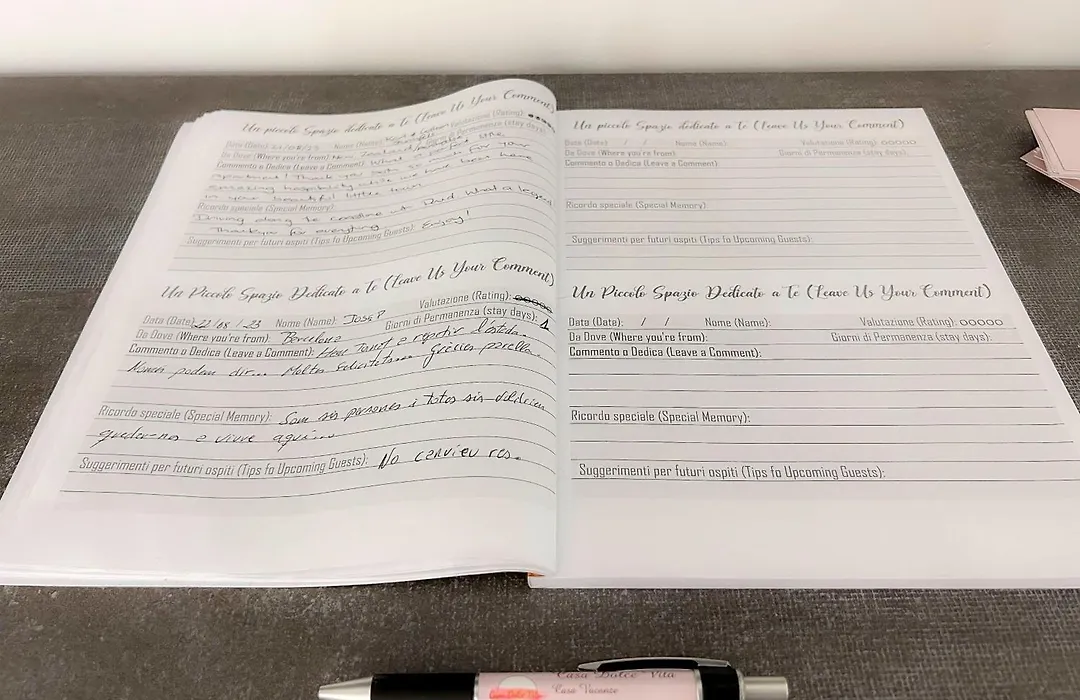 Un piccolo Spazio dedicato a Te (Leave Us Your Comment)
Data (Date): Nome (Name): Valutazione (Rating):
Da Dove (Where you're from): Giorni di Permanenza (stay days):
Commento o Dedica (Leave a Comment): What a perfect little
apartment! Thank you for your
amazing hospitality we have been
in your beautiful little town
Ricordo speciale (Special Memory):
Driving along the coastline with David what a legend
Thankyou for everything
Suggerimenti per futuri ospiti (Tips fo Upcoming Guests): Enjoy!
Un Piccolo Spazio Dedicato a Te (Leave Us Your Comment)
Data (Date): 22/08/23 Nome (Name): Josep Valutazione (Rating): ooooo
Da Dove (Where you're from): Barcelona Giorni di Permanenza (stay days): 1
Commento o Dedica (Leave a Comment): Hem tanat a repetir l'estada.
Només podem dir... Moltes felicitats.... Gràcies parella.
Ricordo speciale (Special Memory): Som sis persones i totes sis voldríem
quedar-nos a viure aquí....
Suggerimenti per futuri ospiti (Tips fo Upcoming Guests): No canvieu res.
Un piccolo Spazio dedicato a Te (Leave Us Your Comment)
Data (Date): / / Nome (Name): Valutazione (Rating): ooooo
Da Dove (Where you're from): Giorni di Permanenza (stay days):
Commento o Dedica (Leave a Comment):
Ricordo speciale (Special Memory):
Suggerimenti per futuri ospiti (Tips fo Upcoming Guests):
Un Piccolo Spazio Dedicato a Te (Leave Us Your Comment)
Data (Date): / / Nome (Name): Valutazione (Rating): ooooo
Da Dove (Where you're from): Giorni di Permanenza (stay days):
Commento o Dedica (Leave a Comment):
Ricordo speciale (Special Memory):
Suggerimenti per futuri ospiti (Tips fo Upcoming Guests):
Casa Dolce Vita
Casa Vacanze